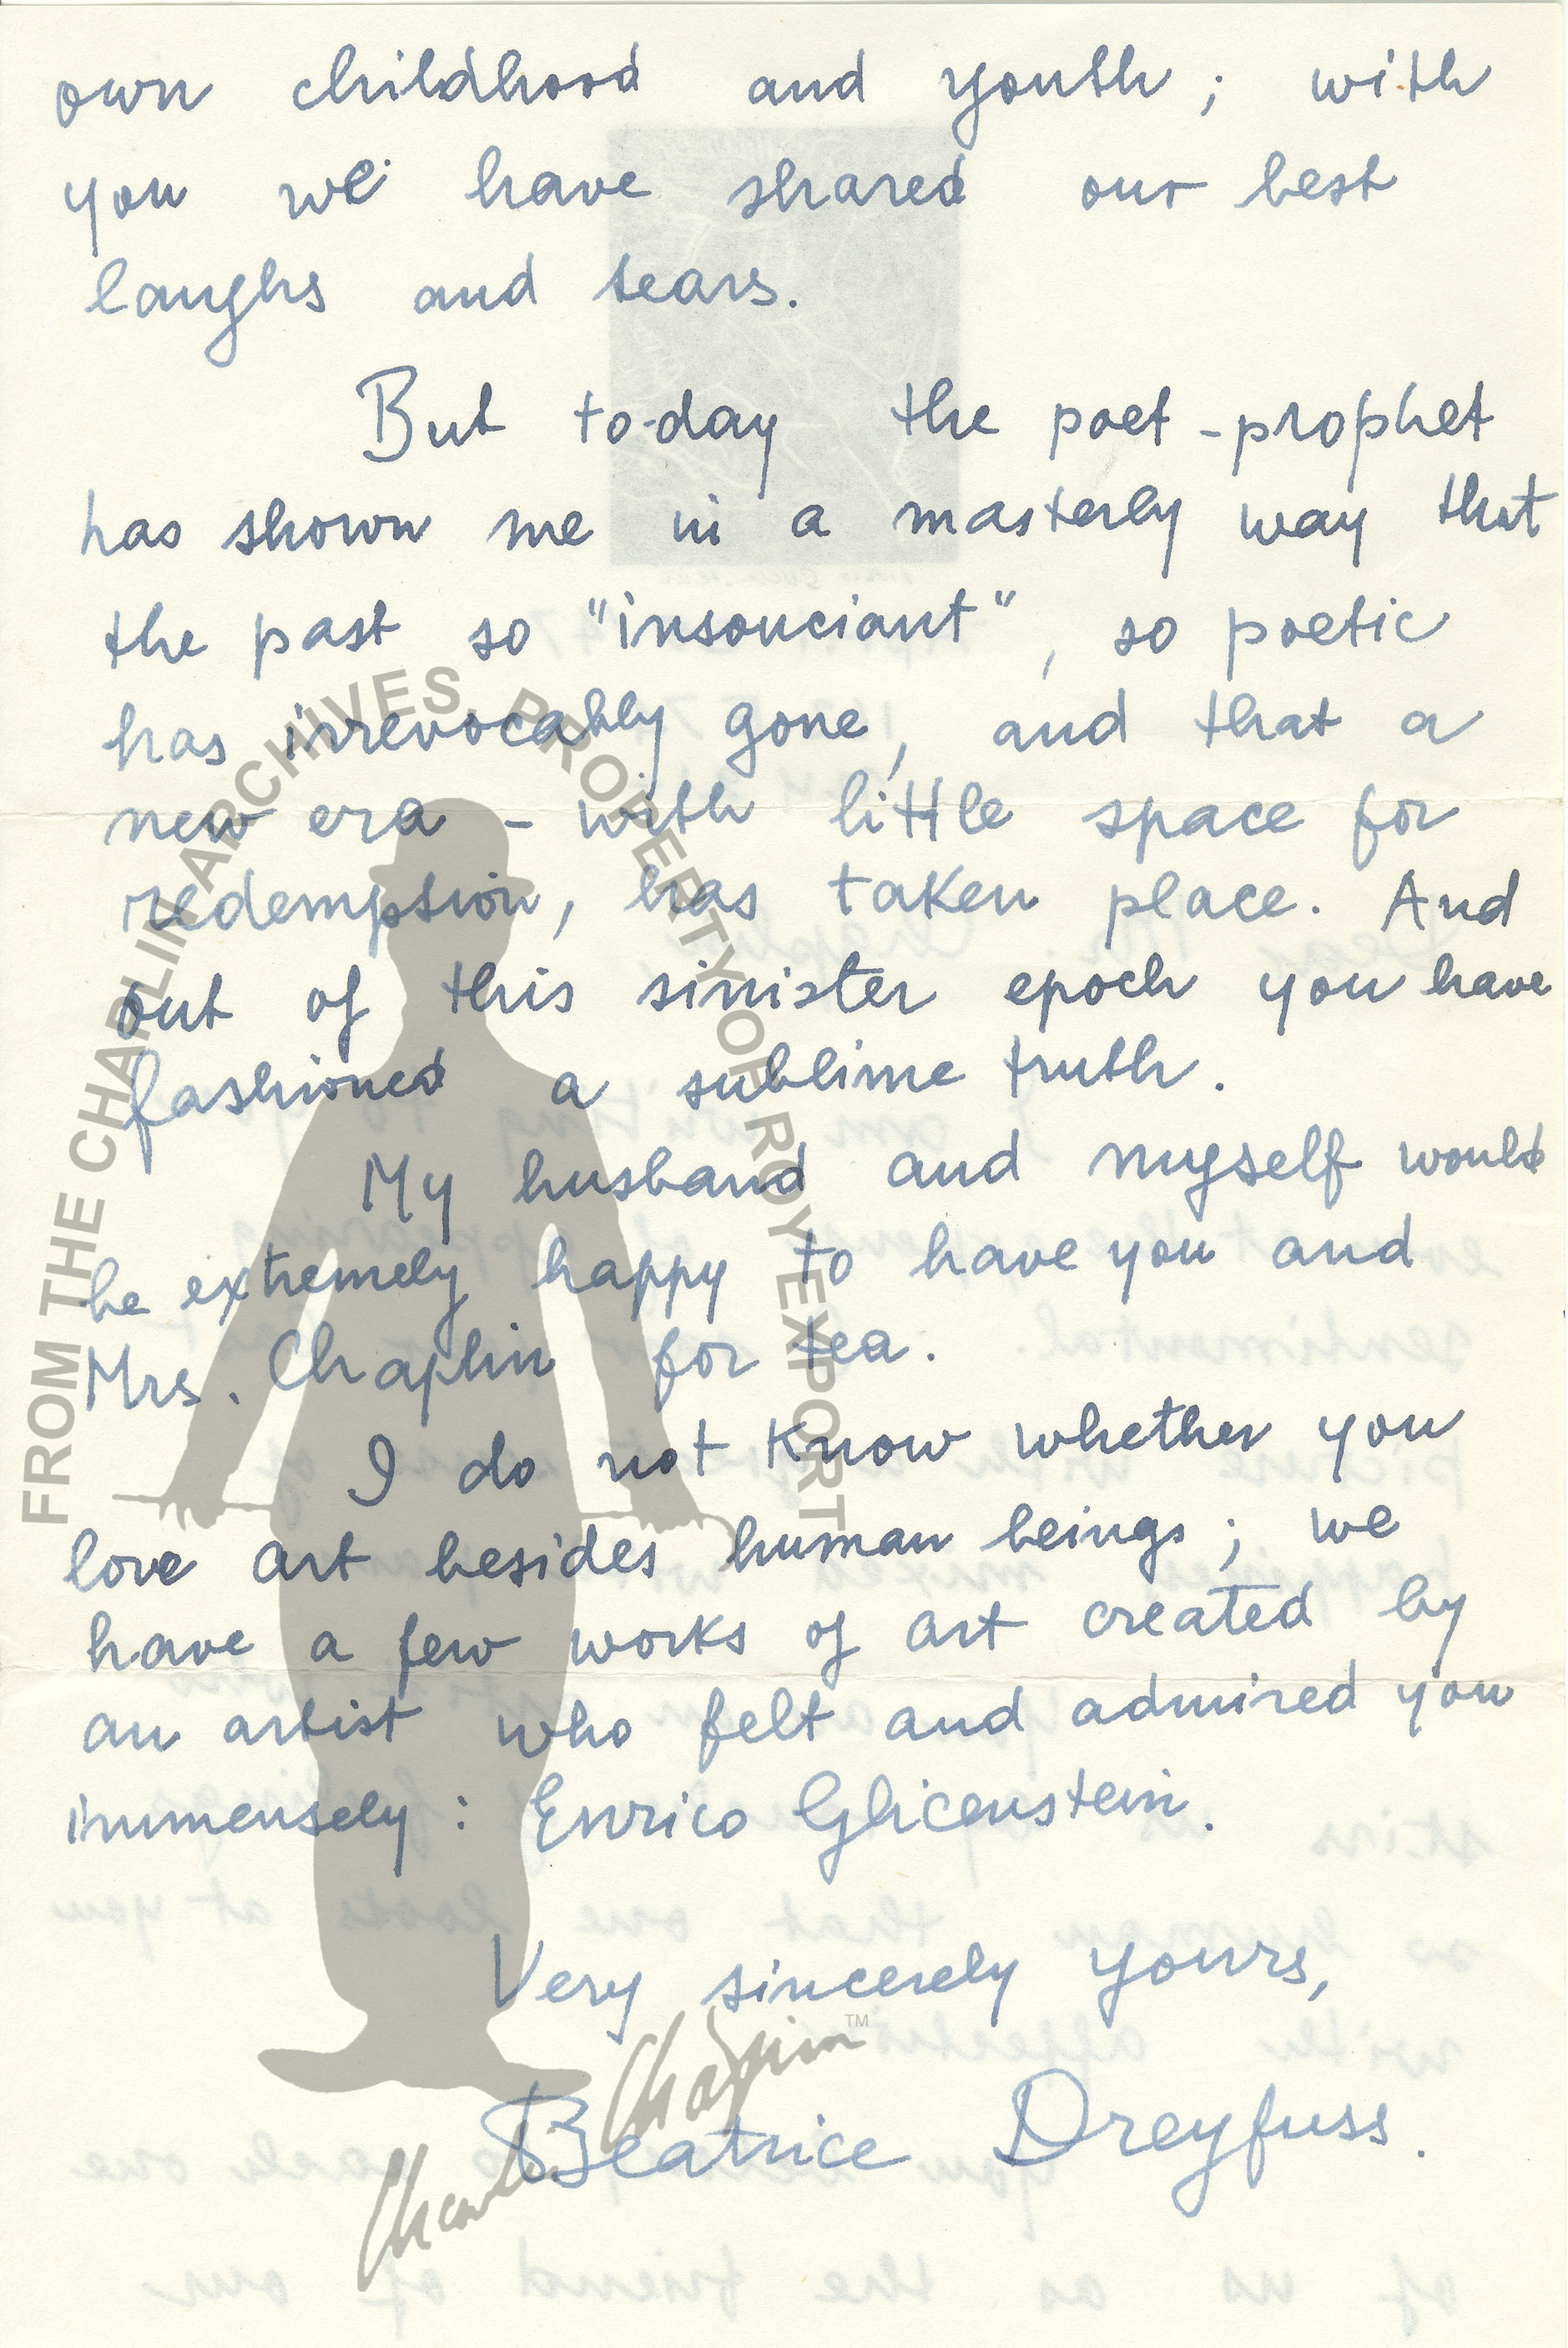 own childhood and youth; with
you we have shared our best
laughs and tears.
But to-day the poet-prophet
has shown me in a masterly way that
the past so "insouciant", so poetic
has irrevocably gone, and that a
new era - with little space for
redemption, has taken place. And
out of this sinister epoch you have
fashioned a sublime truth.
My husband and myself would
be extremely happy to have you and
Mrs. Chaplin for tea.
I do not know whether you
love art besides human beings; we
have a few works of art created by
an artist who felt and admired you
immensely: Enrico Glicenstein.
Very sincerely yours,
Beatrice Dreyfuss.
FROM THE CHAPLIN ARCHIVES, PROPERTY OF ROY EXPORT
Charlie Chaplin™